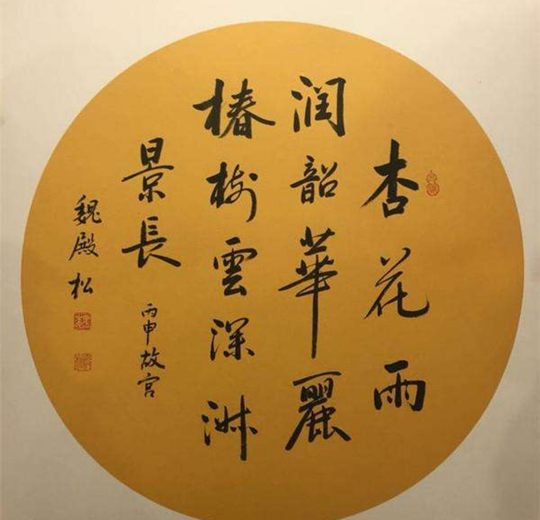 杏花雨
润韶華麗
椿樹雲深淋
景長
丙申故宫
魏殿松